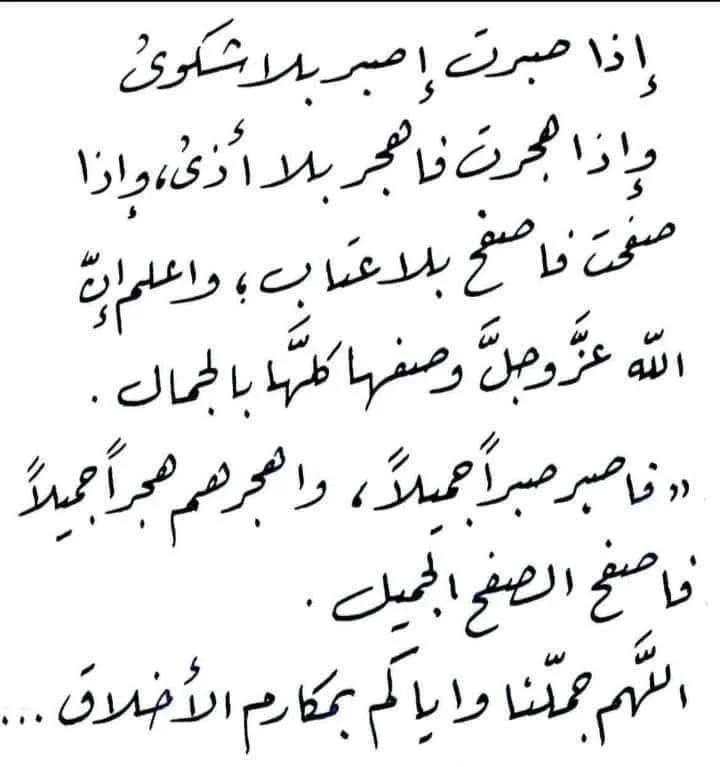 إذا صبرت إصبر بلا شكوىٰ
وإذا هجرت فاهجر بلا أذىٰ، وإذا
صفحتَ فاصفح بلا عتاب؛ واعلم إنّ
اللّه عزَّوجلَّ وصفها كلَّها بالجمال .
„ فاصبر صبراً جميلاً، واهجرهم هجراً جميلاً
فاصفح الصفح الجميل .
اللَّهم جمّلنا واياكم بمكارم الأخلاق ...